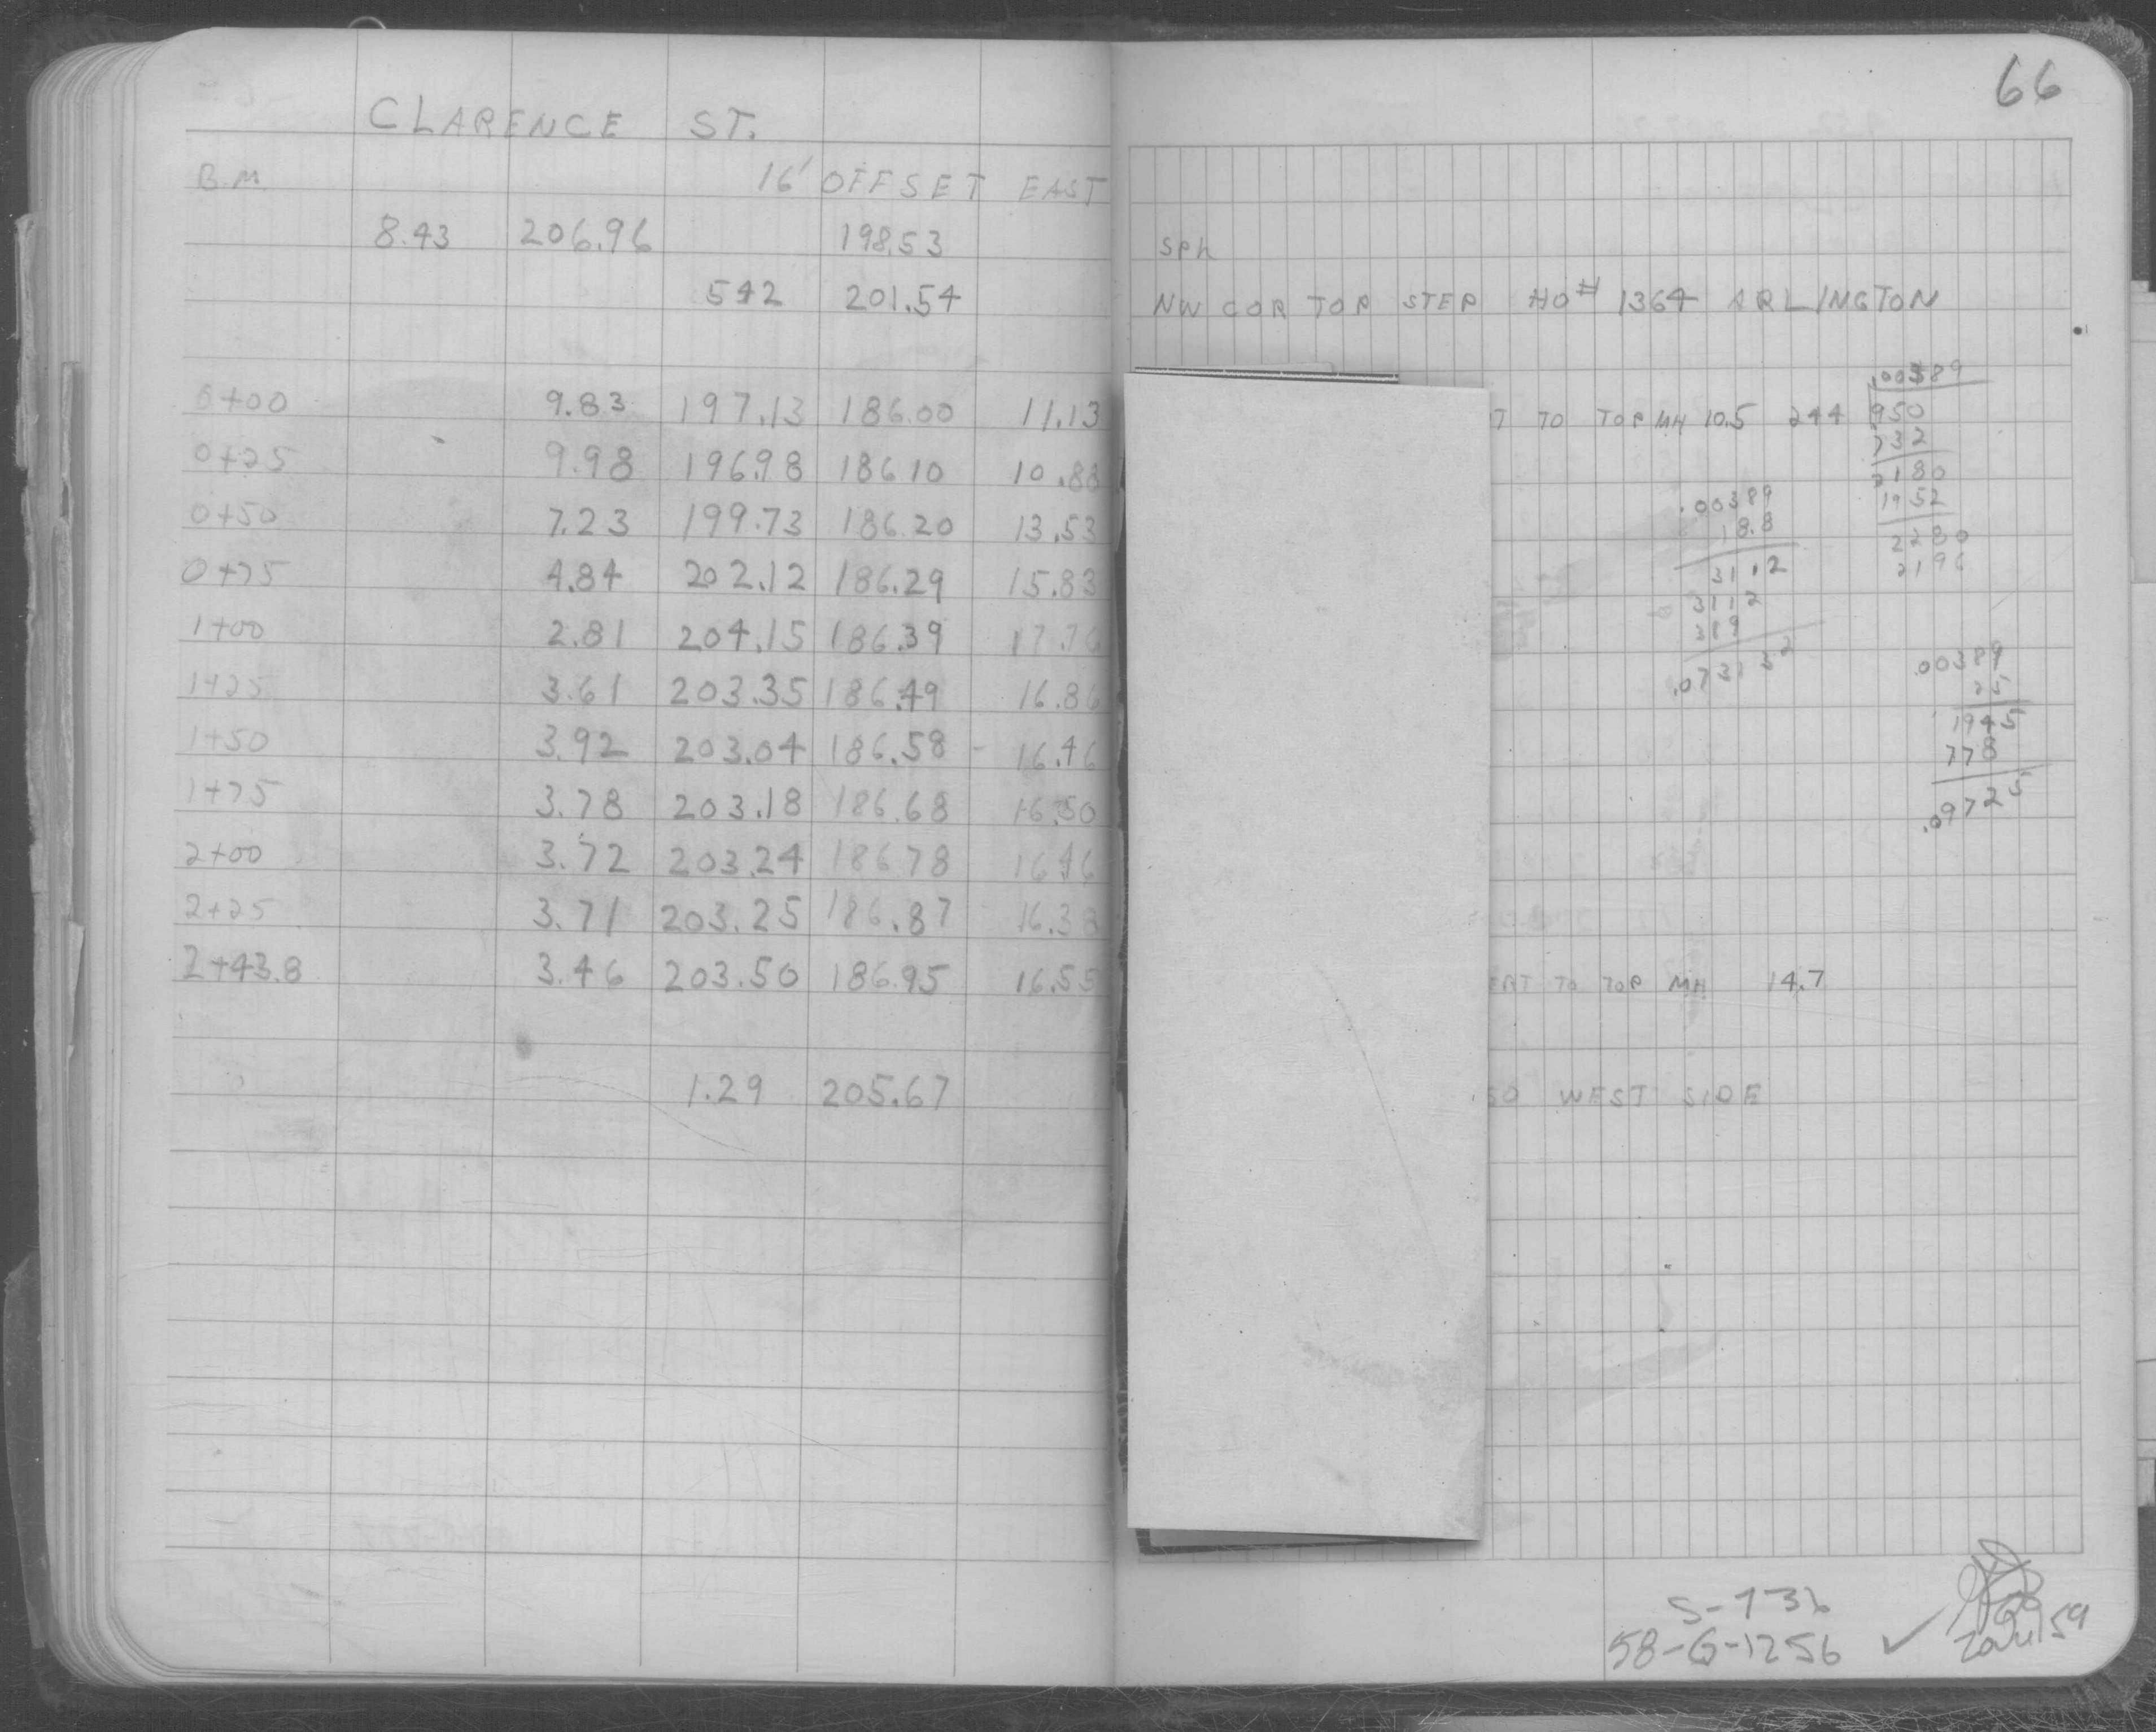 CLARENCE ST.
B.M. 16' OFFSET EAST
8.43 206.96 198.53
542 201.54
0+00 9.83 197.13 186.00 11.13
0+25 9.98 196.98 186.10 10.88
0+50 7.23 199.73 186.20 13.53
0+75 4.84 202.12 186.29 15.83
1+00 2.81 204.15 186.39 17.76
1+25 3.61 203.35 186.49 16.86
1+50 3.92 203.04 186.58 - 16.46
1+75 3.78 203.18 186.68 16.50
2+00 3.72 203.24 186.78 16.46
2+25 3.71 203.25 186.87 16.38
2+43.8 3.46 203.50 186.95 16.55
1.29 205.67
66
SPK
NW COR TOP STEP HO# 1364 ARLINGTON
TO TOP MH 10.5 244
.00389
950
732
2180
1952
2280
2196
.00389
18.8
3112
3112
389
.073132
.00389
25
1945
778
.09725
TO TOP MH 14.7
50 WEST SIDE
S-736
58-G-1256 ✓